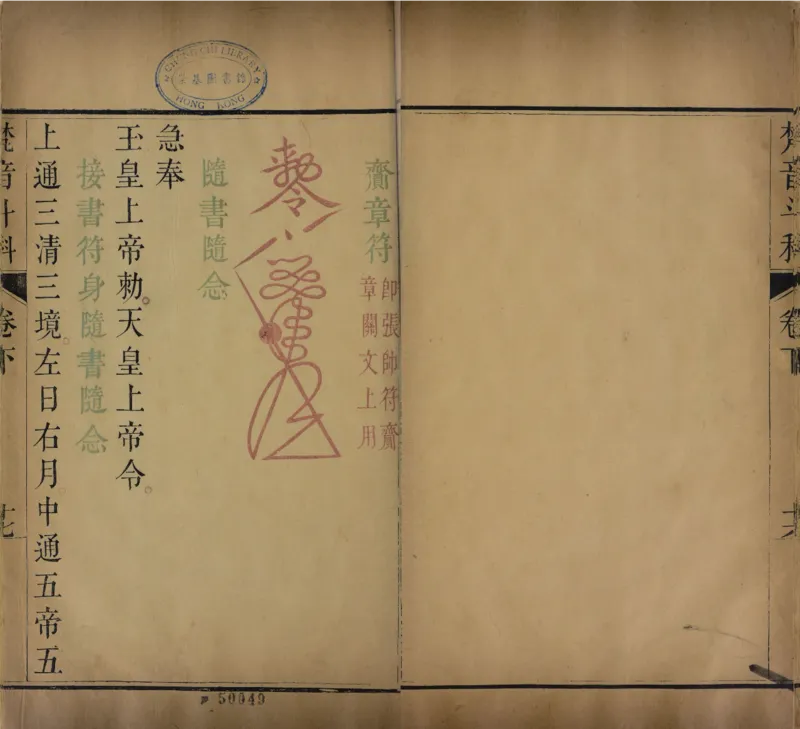 梵音斗科 卷下 十六
齎章符
卽張帥符齎
章關文上用
隨書隨念
急奉
玉皇上帝勅。天皇上帝令。
接書符身隨書隨念
上通三清三境。左日右月。中通五帝五
梵音斗科 卷下 十七
CHUNG CHI LIBRARY
崇基圖書館
HONG KONG
50049